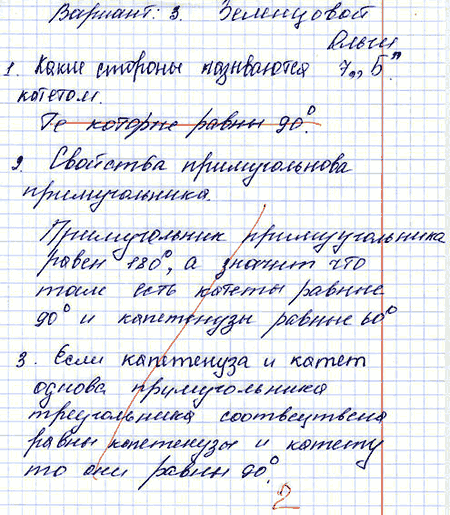 Вариант: 3. Зеленцовой
Ольги
1. Какие стороны називаются 7 „Б"
катетом.
Те которие равны 90°.
2. Свойства примугольнова
примугольника.
Примугольник примуугольника
равен 180°, а значит что
там есть катеты равные
90° и капетенузы равные 60°
3. Если капетенуза и катет
однова примугольника
треугольника соотвеутвена
равны капетенузы и катету
то они равны 90°.
2